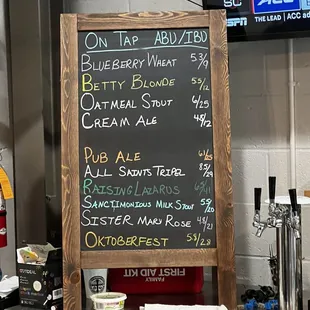 ON TAP ABU/IBU
BLUEBERRY WHEAT 5.3/9
BETTY BLONDE 5.5/12
OATMEAL STOUT 6/25
CREAM ALE 4.8/12
PUB ALE
ALL SAINTS TRIPEL 8.5/29
RAISING LAZARUS
SANCTIMONIOUS MILK STOUT 5.5/20
SISTER MARY ROSE 4.8/21
OKTOBERFEST 5.8/28
ESPN THE LEAD | ACC
FIRST AID KIT